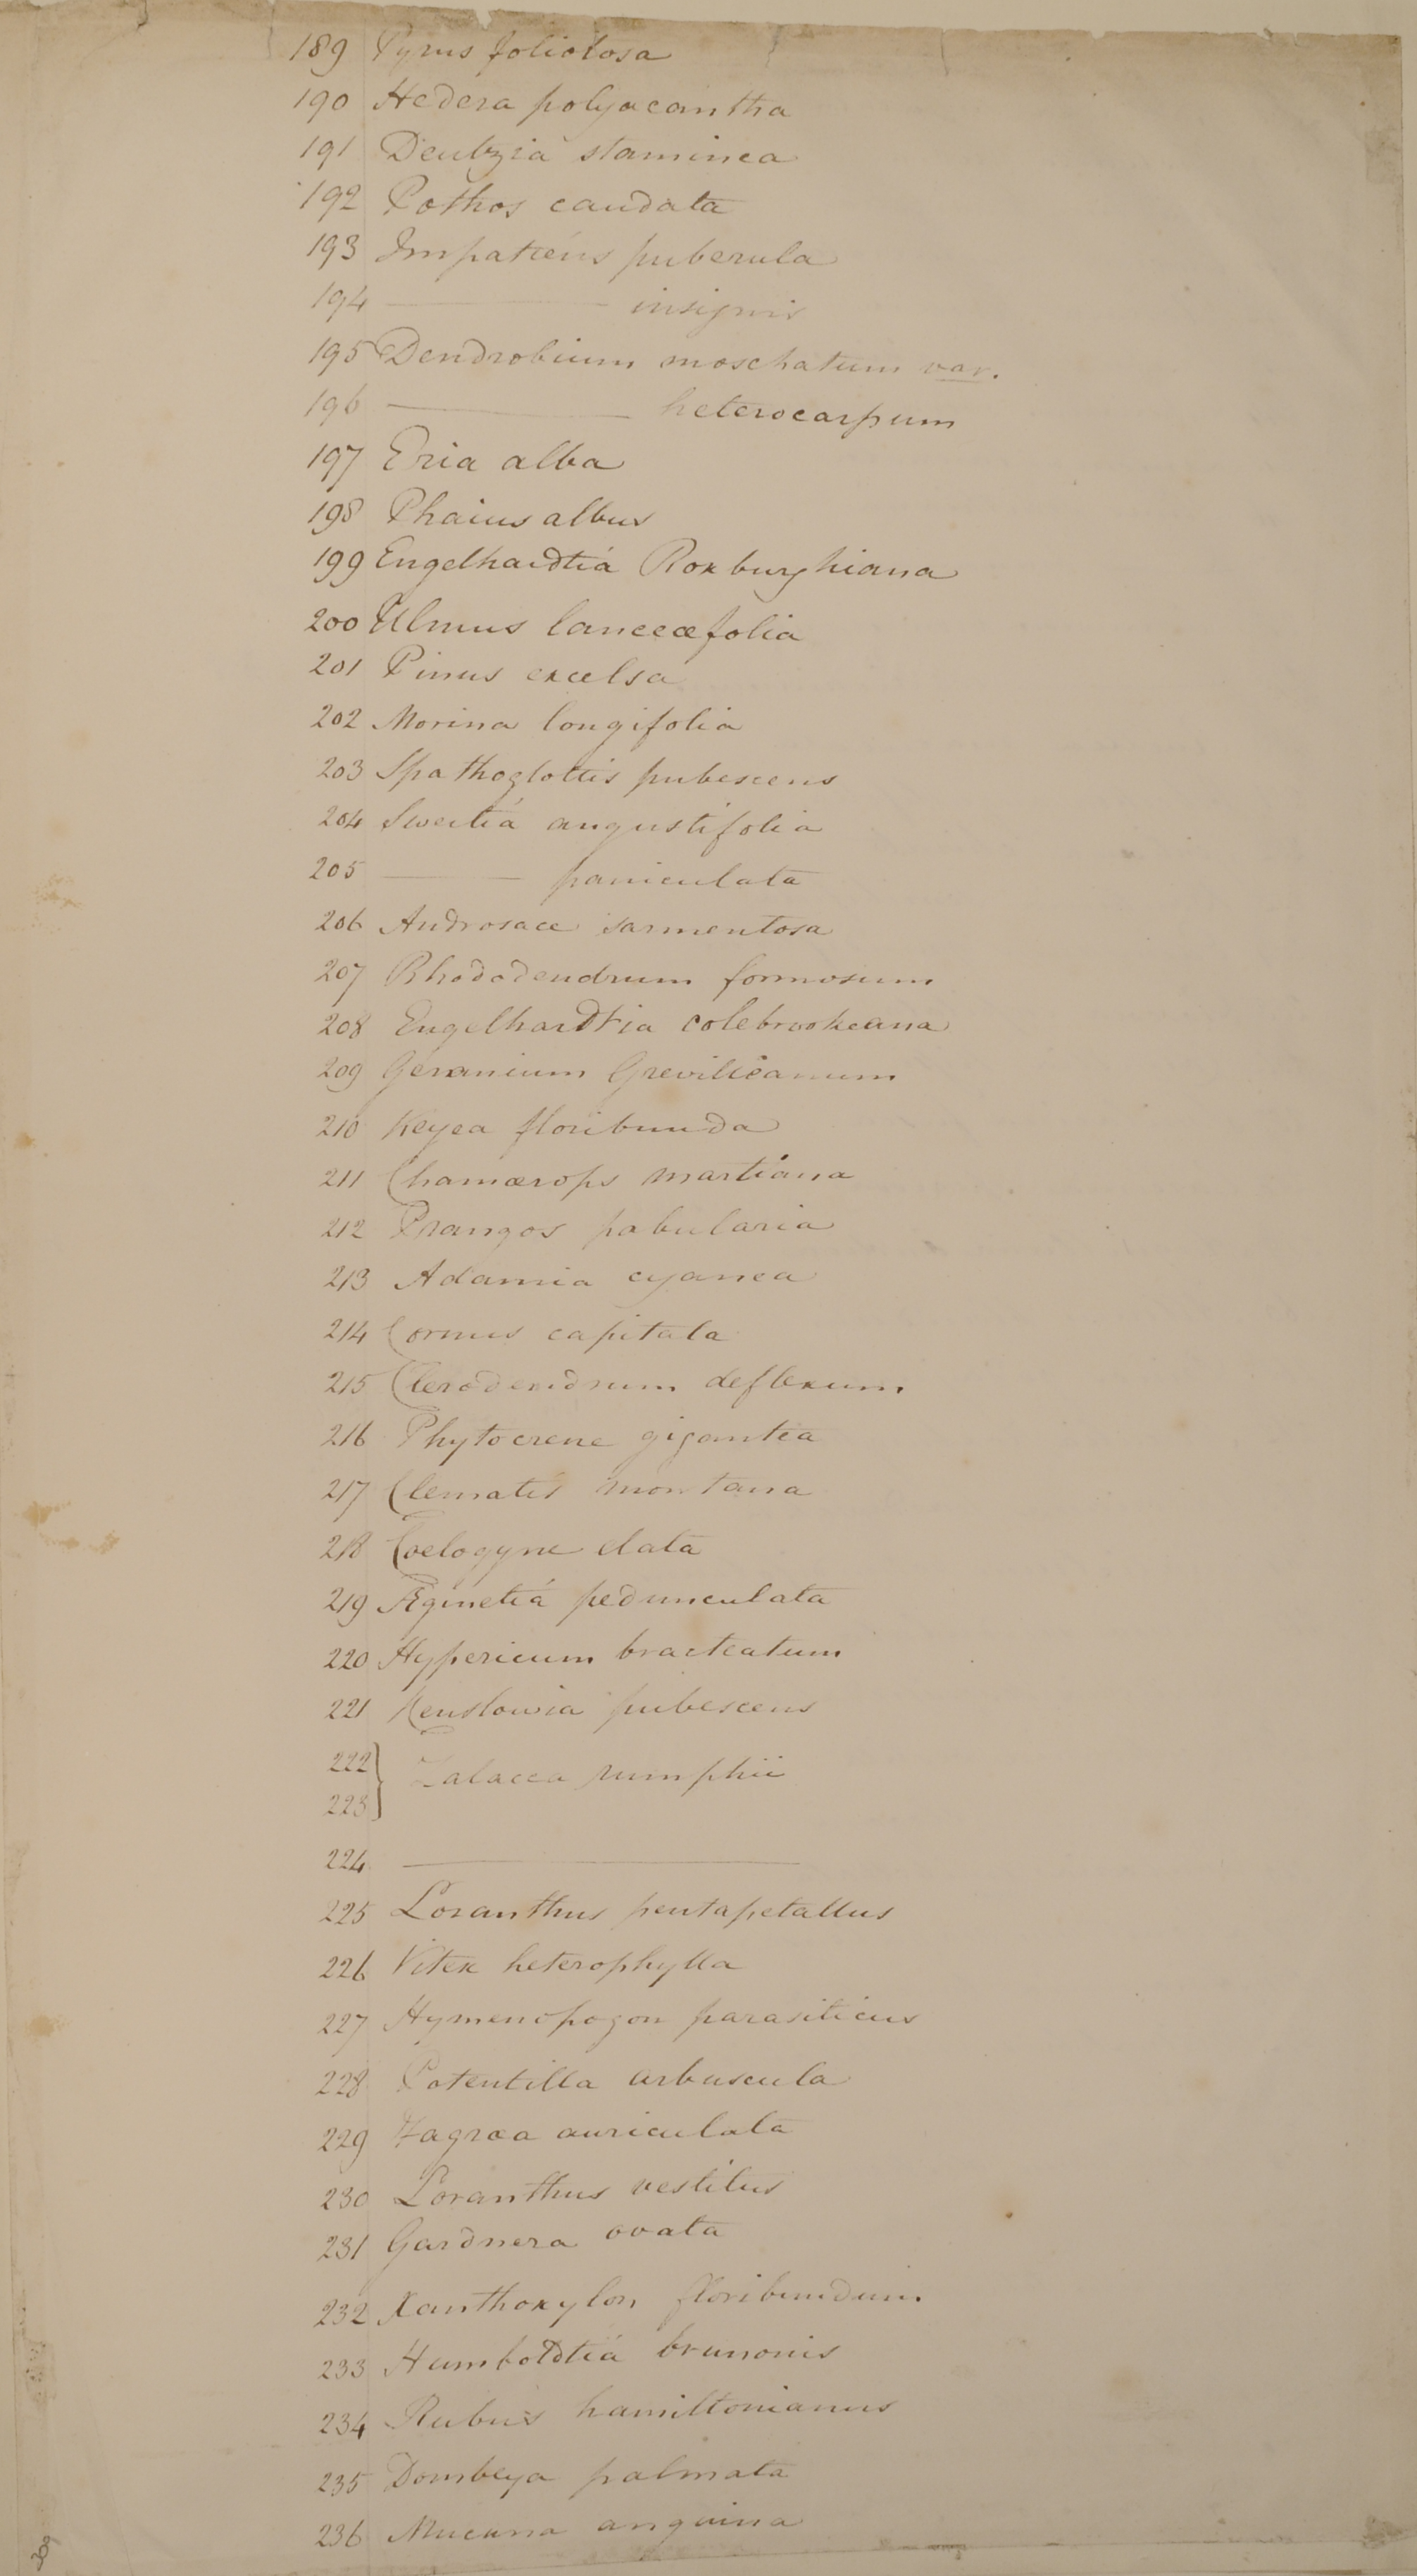 189 Pyrus foliolosa
190 Hedera polyacantha
191 Deutzia staminea
192 Pothos caudata
193 Impatiens puberula
194 ——— insignis
195 Dendrobium moschatum var.
196 ——— heterocarpum
197 Eria alba
198 Phaius albus
199 Engelhardtia Roxburghiana
200 Ulmus lanceæfolia
201 Pinus excelsa
202 Morina longifolia
203 Spathoglottis pubescens
204 Swertia angustifolia
205 ——— paniculata
206 Androsace sarmentosa
207 Rhododendrum formosum
208 Engelhardtia colebrookeana
209 Geranium Grevilleanum
210 Keyea floribunda
211 Chamærops martiana
212 Prangos pabularia
213 Adamia cyanea
214 Cornus capitata
215 Clerodendrum deflexum
216 Phytocrene gigantea
217 Clematis montana
218 Coelogyne elata
219 Æginetia pedunculata
220 Hypericum bracteatum
221 Henslowia pubescens
222 } Zalacca rumphii
223
224 ———
225 Loranthus pentapetallus
226 Vitex heterophylla
227 Hymenopogon parasiticus
228 Potentilla arbuscula
229 Fagræa auriculata
230 Loranthus vestitus
231 Gardnera ovata
232 Xanthoxylon floribundum
233 Humboldtia brunonis
234 Rubus hamiltonianus
235 Dombeya palmata
236 Mucuna anguina